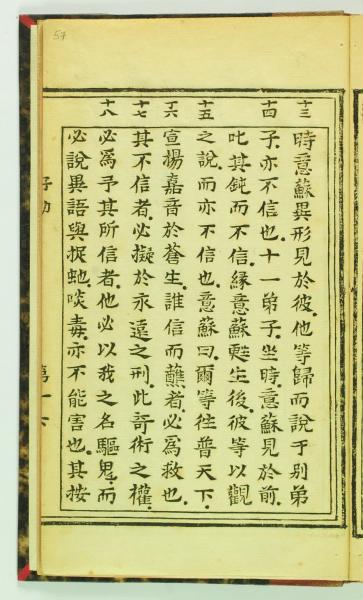 57
十三
時意蘇異形見於彼他等歸而說于別弟
十四
子亦不信也十一弟子坐時意蘇見於前
叱其鈍而不信緣意蘇甦生後彼等以觀
十五
之說而亦不信也意蘇曰爾等往普天下
十六
宣揚嘉音於蒼生誰信而蘸者必為救也
十七
其不信者必擬於永遠之刑此奇術之權
十八
必為予其所信者他必以我之名驅鬼而
必說異語與捉虵啖毒亦不能害也其按